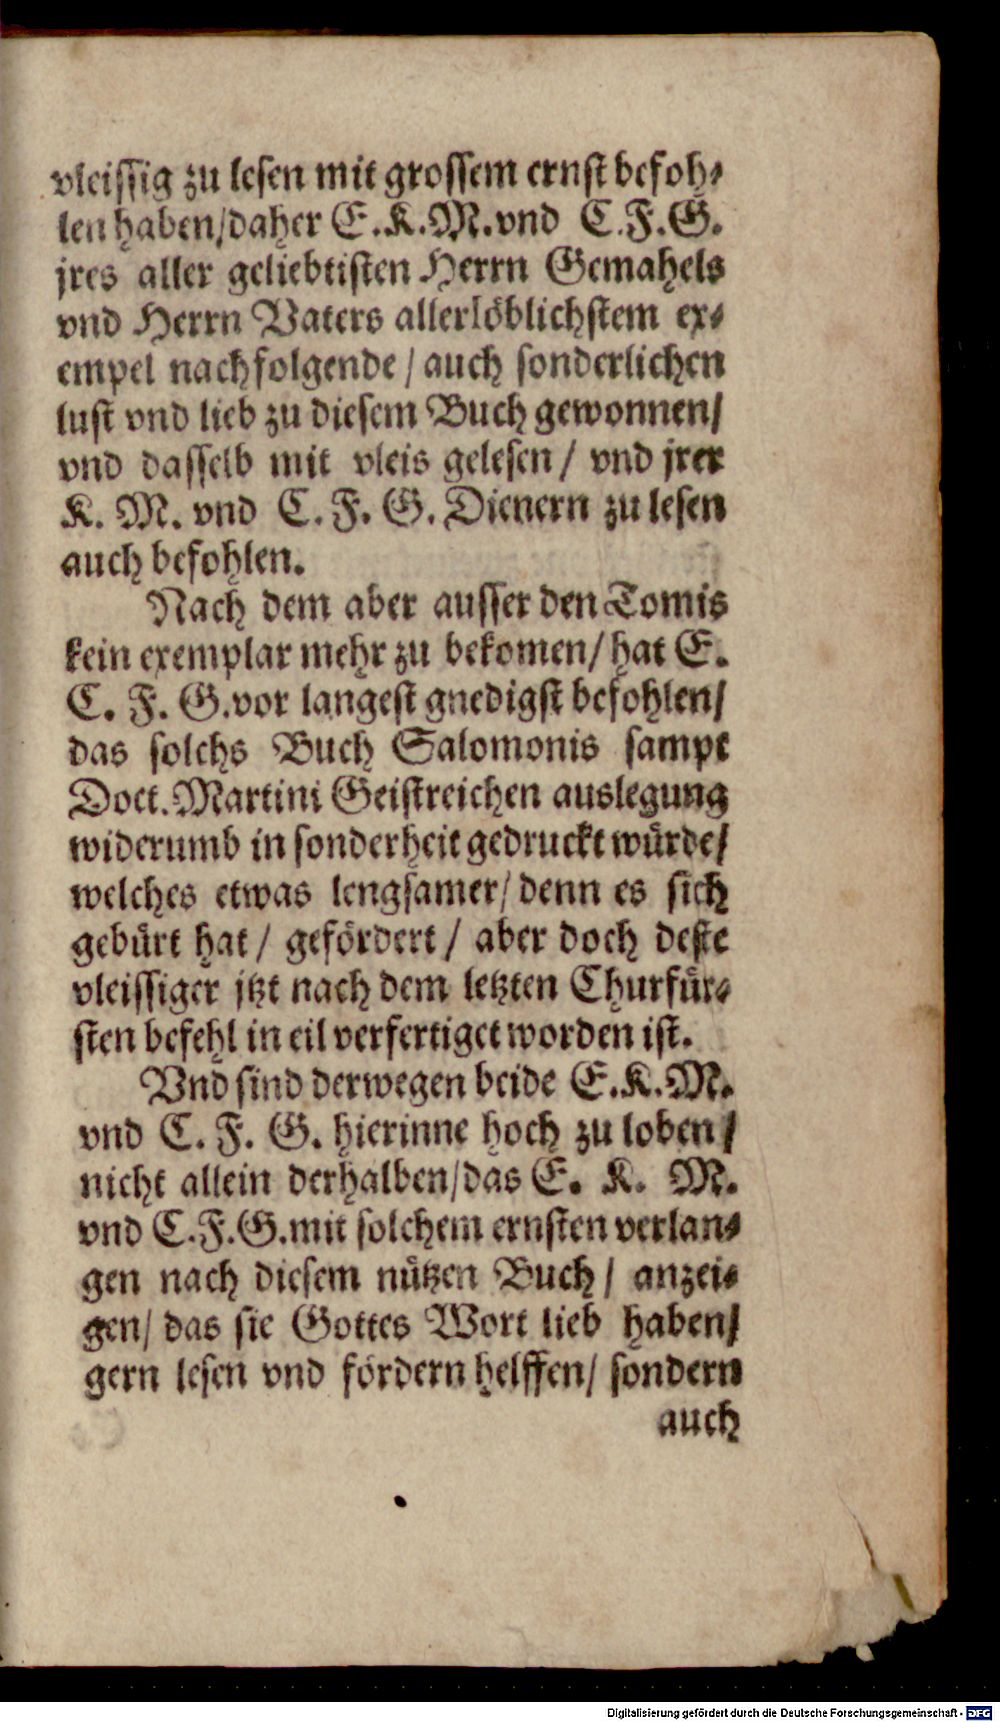 vleissig zu lesen mit grossem ernst befoh⸗
len haben/daher E.K.M.vnd C.F.G.
jres aller geliebtisten Herrn Gemahels
vnd Herrn Vaters allerlöblichstem ex⸗
empel nachfolgende/ auch sonderlichen
lust vnd lieb zu diesem Buch gewonnen/
vnd dasselb mit vleis gelesen/ vnd jrer
K. M. vnd C. F. G. Dienern zu lesen
auch befohlen.
Nach dem aber ausser den Tomis
kein exemplar mehr zu bekomen/ hat E.
C. F. G.vor langest gnedigst befohlen/
das solchs Buch Salomonis sampt
Doct.Martini Geistreichen auslegung
widerumb in sonderheit gedruckt würde/
welches etwas lengsamer/ denn es sich
gebürt hat/ gefördert/ aber doch deste
vleissiger jtzt nach dem letzten Churfür⸗
sten befehl in eil verfertiget worden ist.
Vnd sind derwegen beide E.K.M.
vnd C. F. G. hierinne hoch zu loben/
nicht allein derhalben/das E. K. M.
vnd C.F.G.mit solchem ernsten verlan⸗
gen nach diesem nützen Buch/ anzei⸗
gen/ das sie Gottes Wort lieb haben/
gern lesen vnd fördern helffen/ sondern
auch
Digitalisierung gefördert durch die Deutsche Forschungsgemeinschaft - DFG